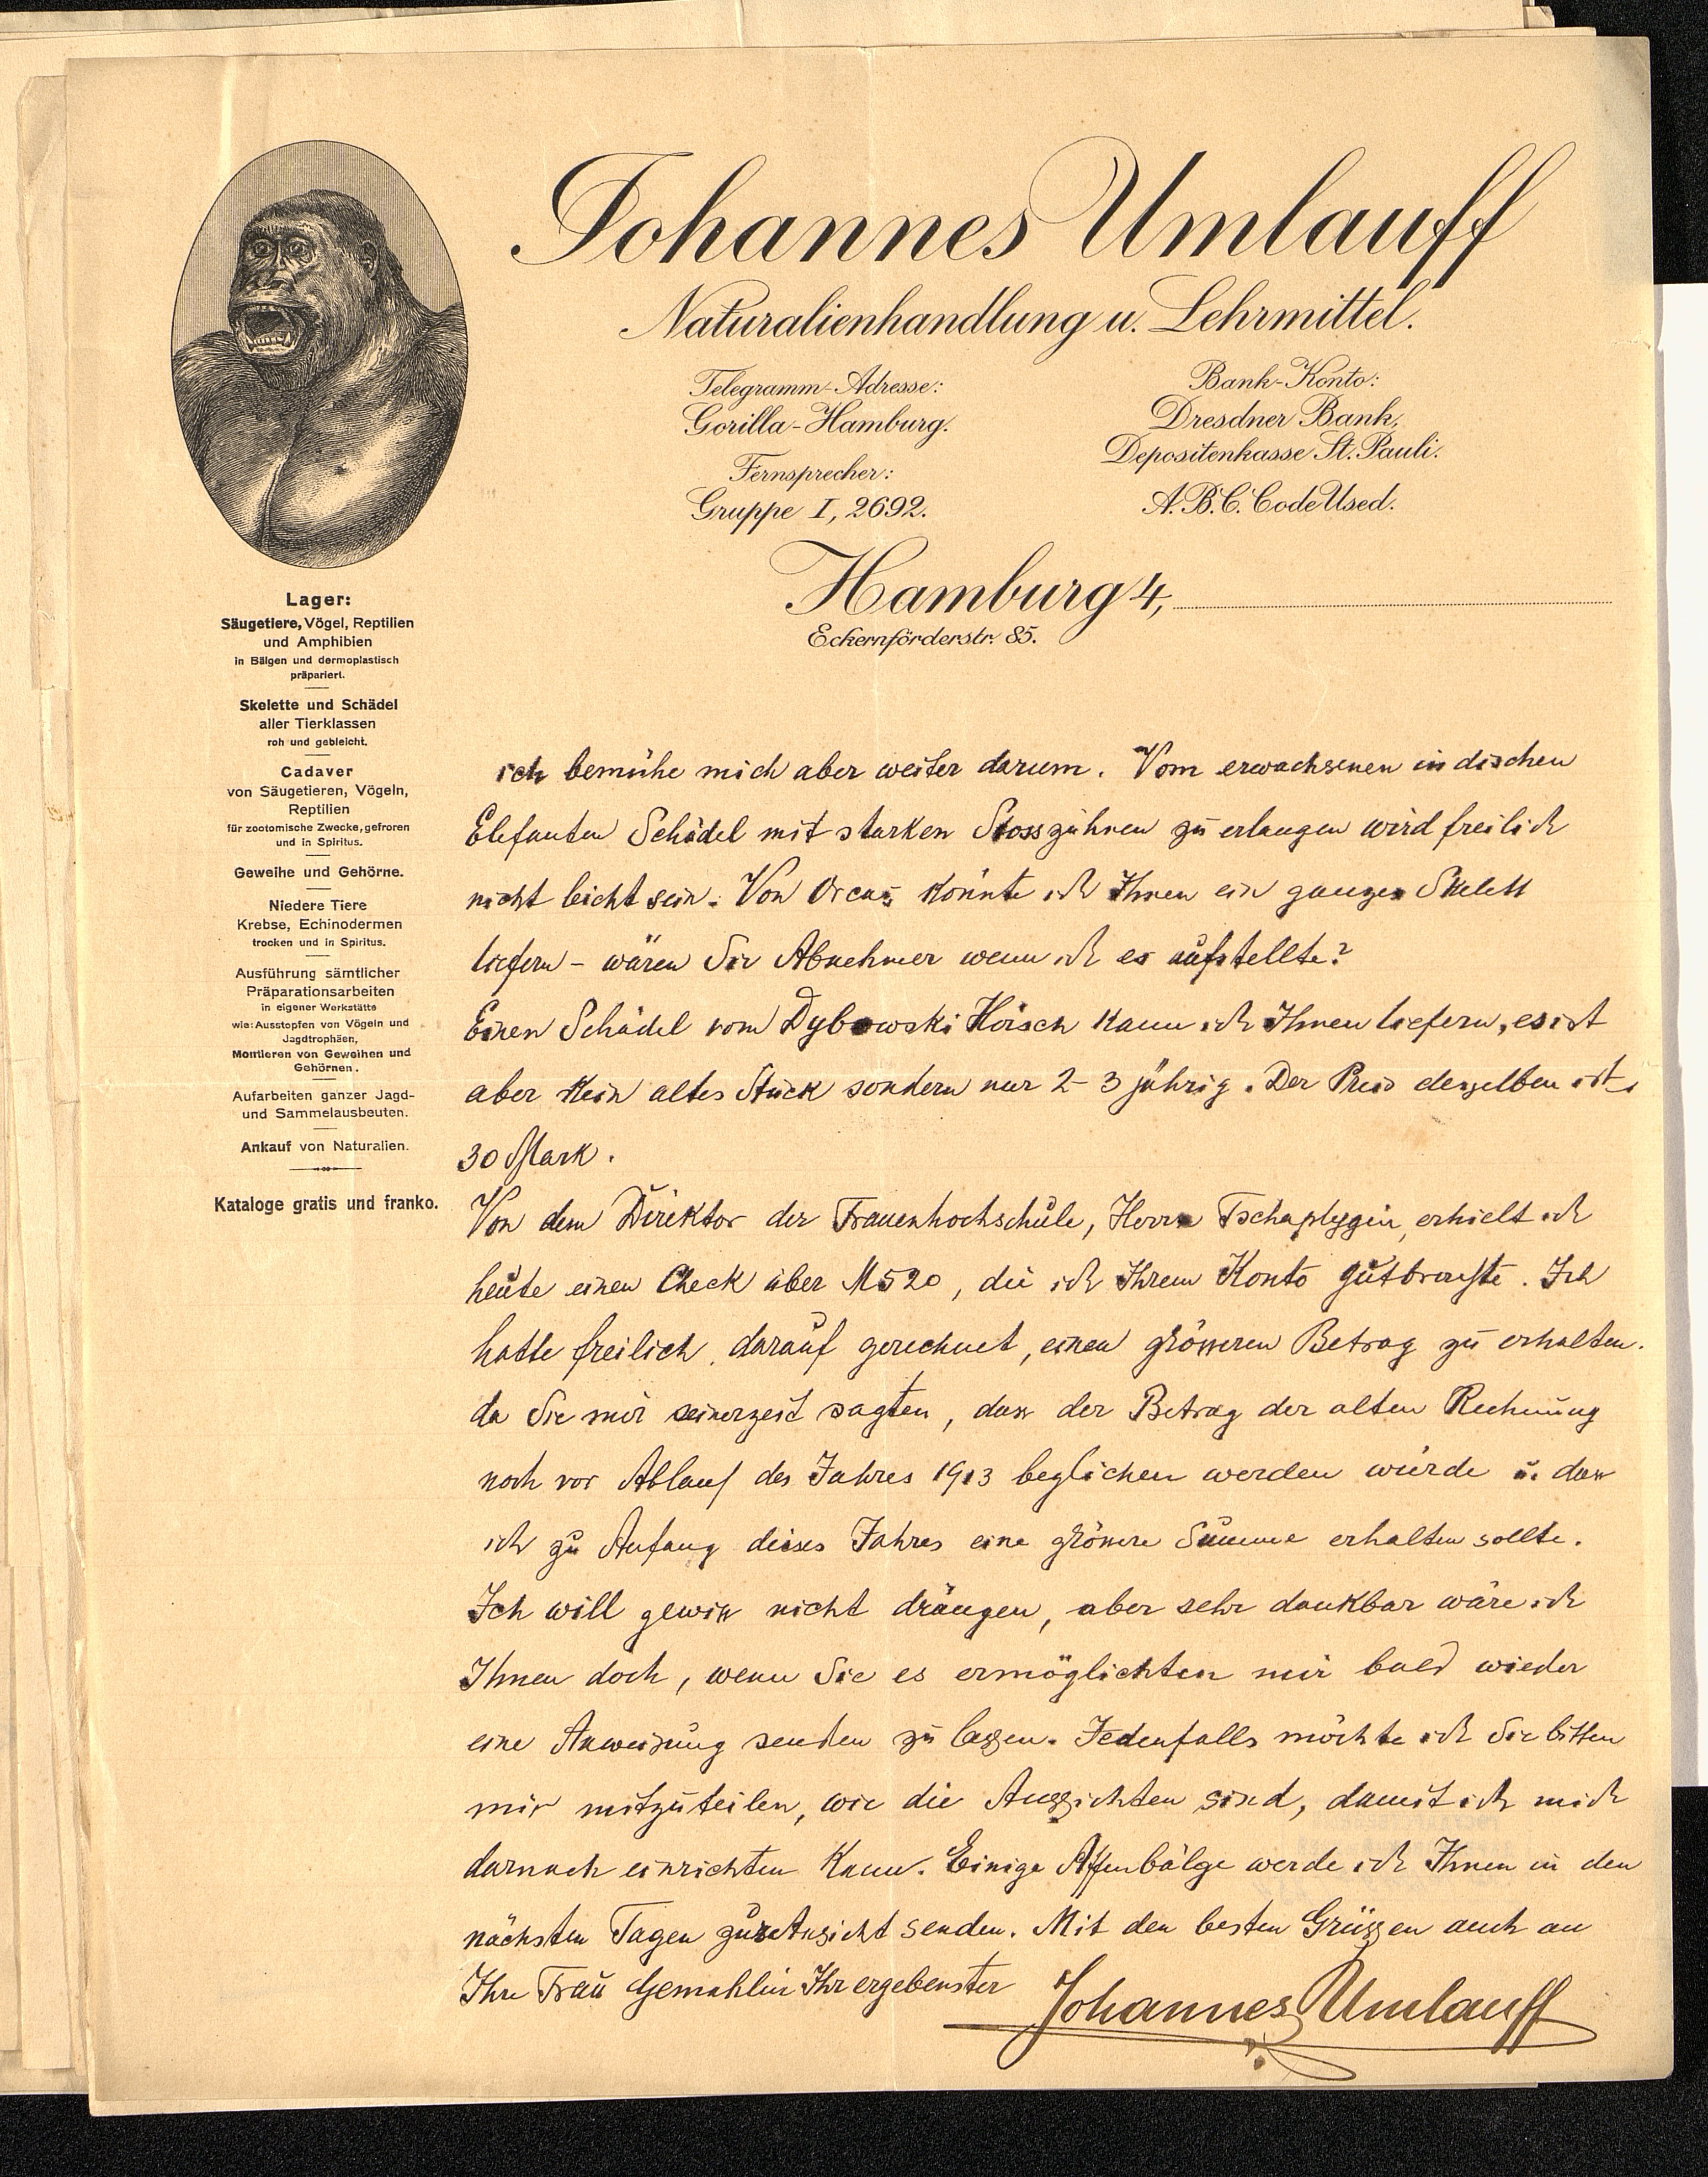 Johannes Umlauff
Naturalienhandlung u. Lehrmittel.
Telegramm-Adresse:
Gorilla-Hamburg.
Fernsprecher:
Gruppe I, 2692.
Bank-Konto:
Dresdner Bank,
Depositenkasse St. Pauli.
A.B.C. Code Used.
Hamburg 4,
Eckernförderstr. 85.
Lager:
Säugetiere, Vögel, Reptilien
und Amphibien
in Bälgen und dermoplastisch
präpariert.
Skelette und Schädel
aller Tierklassen
roh und gebleicht.
Cadaver
von Säugetieren, Vögeln,
Reptilien
für zootomische Zwecke, gefroren
und in Spiritus.
Geweihe und Gehörne.
Niedere Tiere
Krebse, Echinodermen
trocken und in Spiritus.
Ausführung sämtlicher
Präparationsarbeiten
in eigener Werkstätte
wie: Ausstopfen von Vögeln und
Jagdtrophäen,
Montieren von Geweihen und
Gehörnen.
Aufarbeiten ganzer Jagd-
und Sammelausbeuten.
Ankauf von Naturalien.
Kataloge gratis und franko.
ich bemühe mich aber weiter darum. Vom erwachsenen indischen
Elefanten Schädel mit starken Stosszähnen zu erlangen wird freilich
nicht leicht sein. Von Orcas könnte ich Ihnen ein ganzes Skelett
liefern - wären Sie Abnehmer wenn ich es aufstellte?
Einen Schädel vom Dybowski Hirsch kann ich Ihnen liefern, es ist
aber kein altes Stück sondern nur 2-3 jährig. Der Preis desselben ist
30 Mark.
Von dem Direktor der Frauenhochschule, Herrn Tschaplygin, erhielt ich
heute einen Check über M 520, die ich Ihrem Konto gutbrachte. Ich
hatte freilich darauf gerechnet, einen grösseren Betrag zu erhalten.
da Sie mir seinerzeit sagten, dass der Betrag der alten Rechnung
noch vor Ablauf des Jahres 1913 beglichen werden würde u. dass
ich zu Anfang dieses Jahres eine grössere Summe erhalten sollte.
Ich will gewiss nicht drängen, aber sehr dankbar wäre ich
Ihnen doch, wenn Sie es ermöglichten mir bald wieder
eine Anweisung senden zu lassen. Jedenfalls möchte ich Sie bitten
mir mitzuteilen, wie die Aussichten sind, damit ich mich
darnach einrichten kann. Einige Affenbälge werde ich Ihnen in den
nächsten Tagen zur Ansicht senden. Mit den besten Grüssen auch an
Ihre Frau Gemahlin Ihr ergebenster
Johannes Umlauff